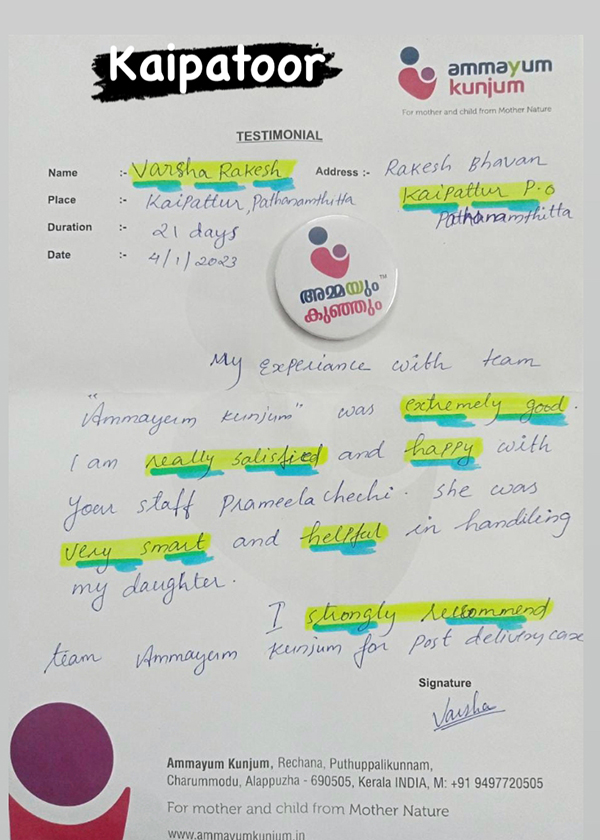 Kaipatoor
ammayum
kunjum
For mother and child from Mother Nature
TESTIMONIAL
Name :- Varsha Rakesh
Address :- Rakesh Bhavan
Kaipattur P.O
Pathanamthitta
Place :- Kaipattur, Pathanamthitta
Duration :- 21 days
Date :- 4/1/2023
അമ്മയും TM
കുഞ്ഞും
My experiance with team
"Ammayum kunjum" was extremely good.
I am really satisfied and happy with
your staff Prameela chechi. She was
very smart and helpful in handiling
my daughter.
I strongly recommend
team Ammayum kunjum for post delivery case
Signature
Varsha
Ammayum Kunjum, Rechana, Puthuppalikunnam,
Charummodu, Alappuzha - 690505, Kerala INDIA, M: +91 9497720505
For mother and child from Mother Nature
www.ammayumkunjum.in